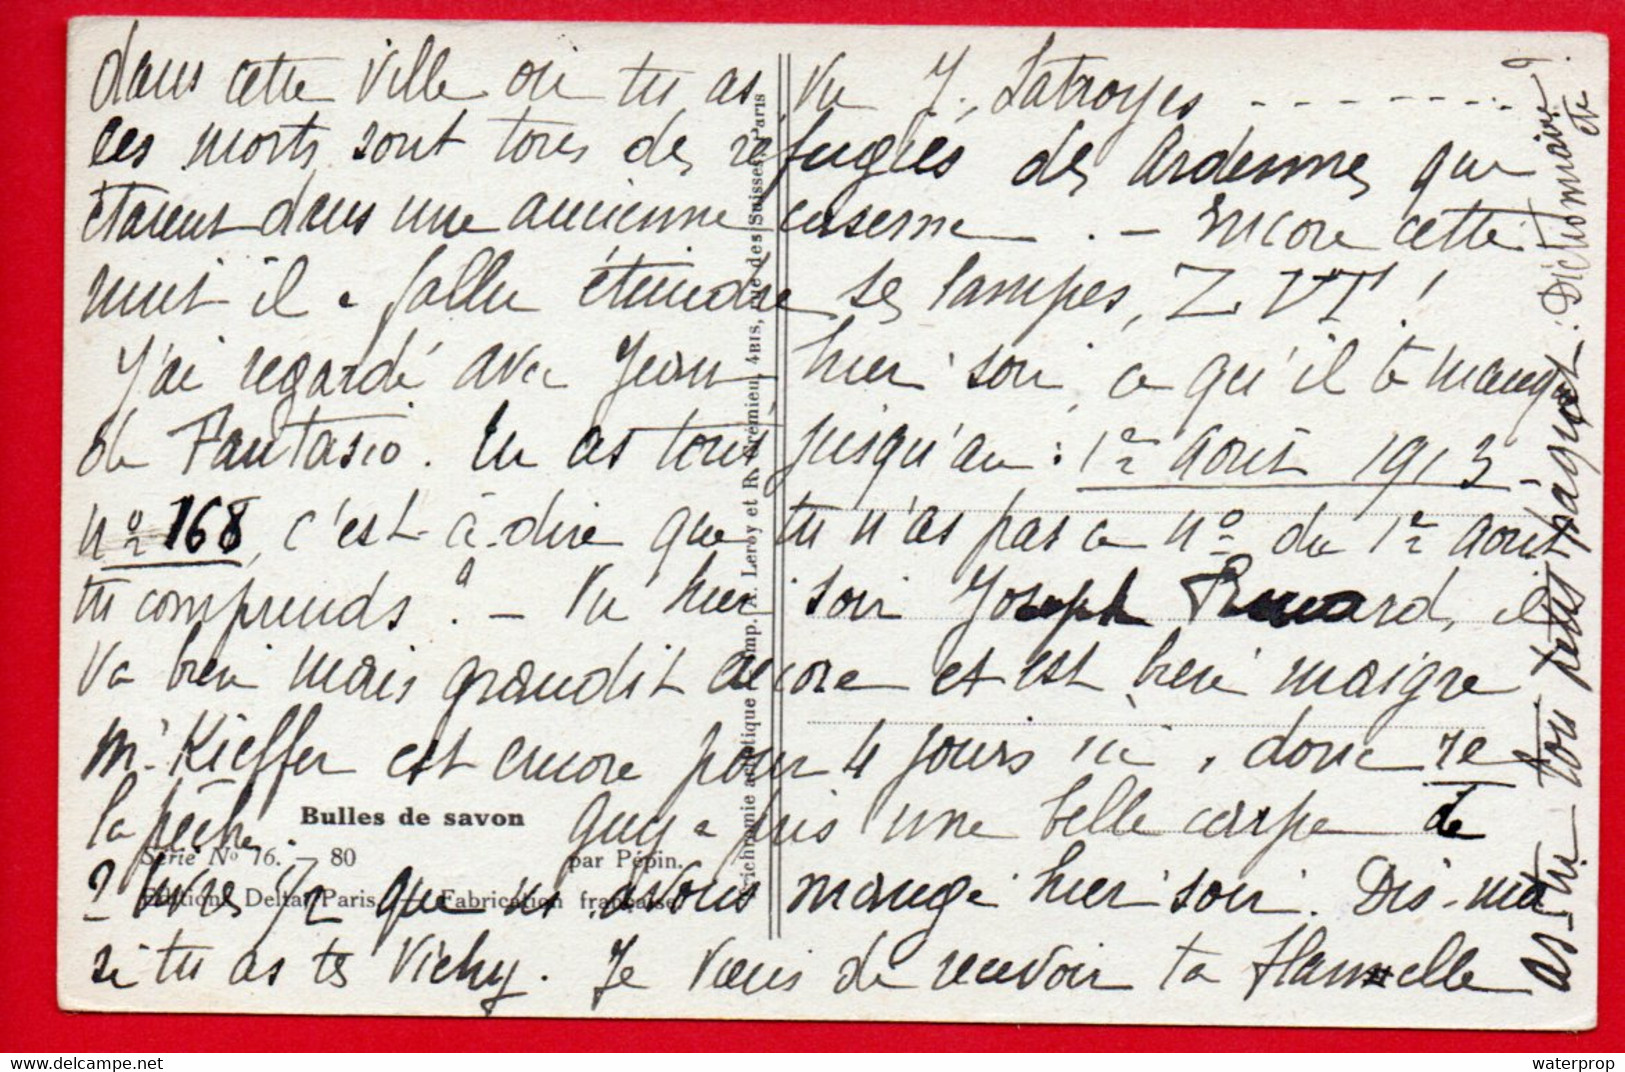 dans cette ville où tu as vu J. Latroyes - - - - - - - -
ces morts sont tous des réfugiés des Ardennes qui
étaient dans une ancienne caserne. - Encore cette
nuit il a fallu éteindre les lampes, Z VI !
J'ai regardé avec Jean hier soir, ce qu'il te manque
de Fantasio. Tu as tous jusqu'au : 1er août 1913 -
nº 168, c'est-à-dire que tu n'as pas ce nº du 1er août
tu comprends ? - Vu hier soir Joseph Renard, il
va bien mais grandit encore et est bien maigre
Mr Kieffer est encore pour 4 jours ici, donc re
la pêche. Guy a pris une belle carpe de
2 livres 1/2 que ns avons mangé hier soir. Dis-moi
si tu as ta Vichy. Je viens de recevoir ta flanelle
as-tu ton petit paquet : Dictionnaire ?
etc
Bulles de savon
Série Nº 76. — 80
par Pépin.
Editions Delta, Paris. — Fabrication française
Trichromie artistique Imp. A. Leroy et R. Crémieu, 4BIS, rue des Suisses, Paris
waterprop